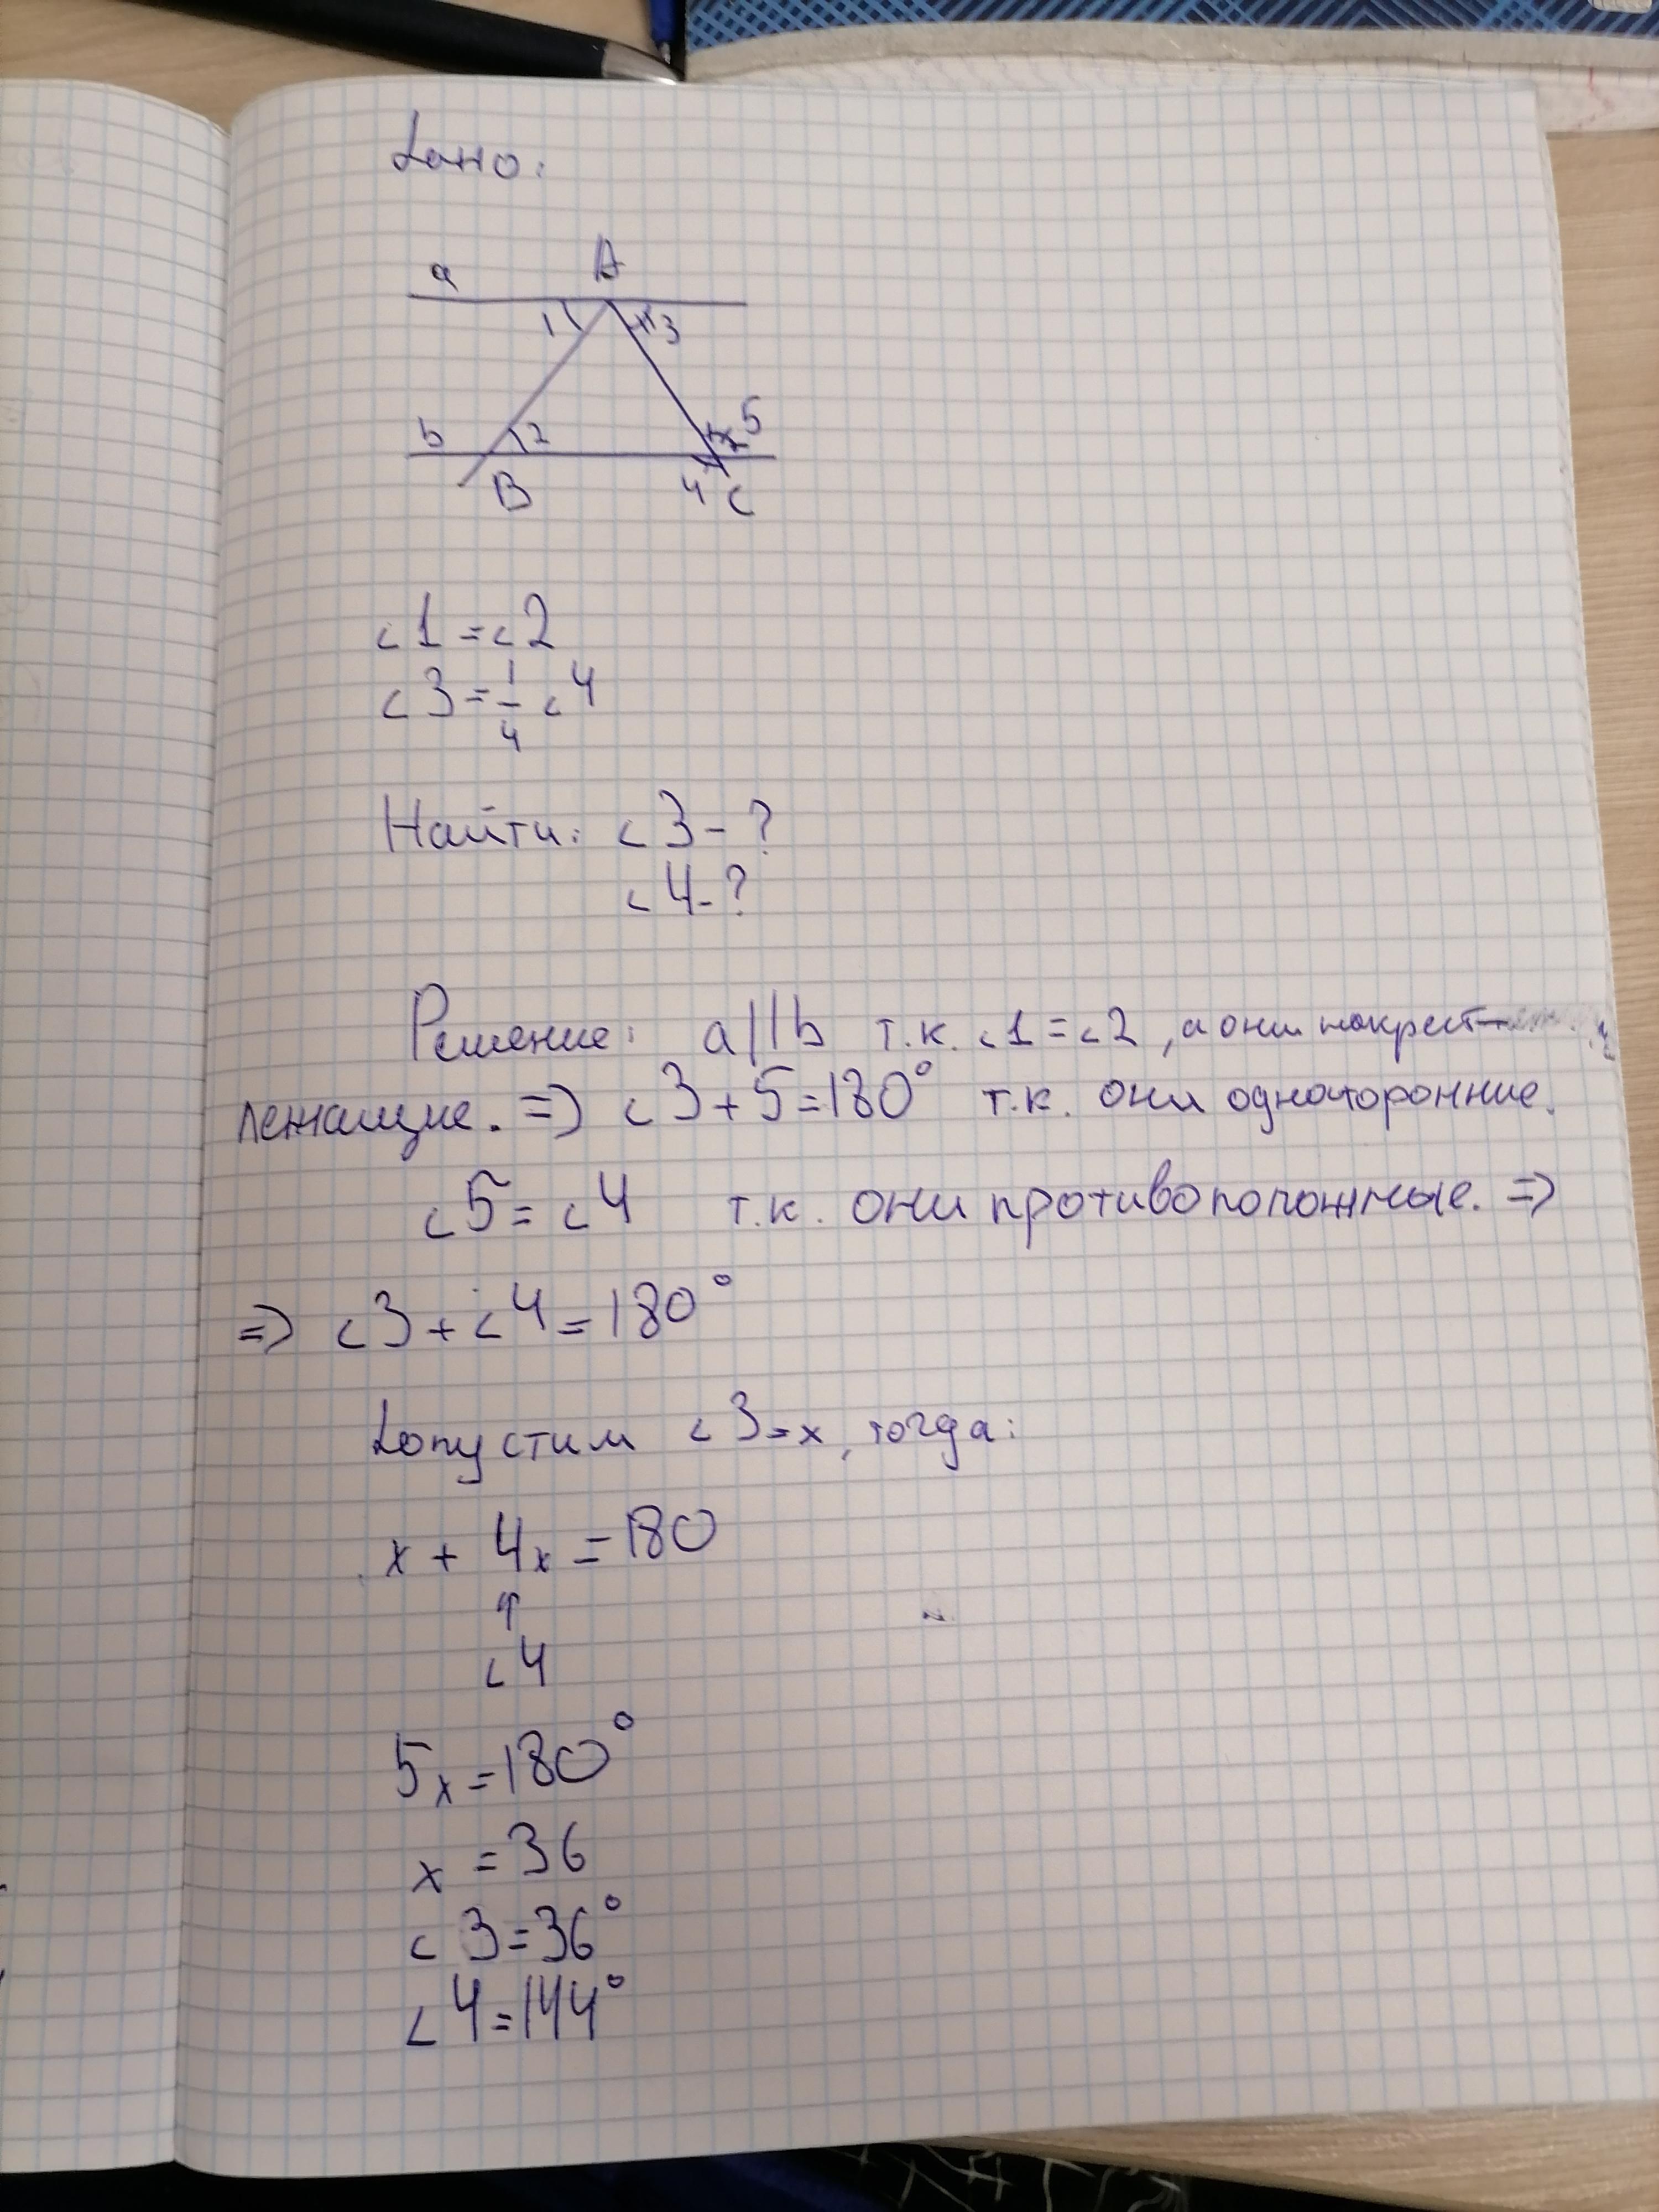 Дано:
a A
1 3
b 2 5
B 4 C
∠1=∠2
∠3=1/4 ∠4
Найти: ∠3-?
∠4-?
Решение: a||b т.к. ∠1=∠2, а они накрест
лежащие. => ∠3+5=180° т.к. они одноторонние.
∠5=∠4 т.к. они противоположные. =>
=> ∠3+∠4=180°
Допустим ∠3=x, тогда:
x+4x=180
↑
∠4
5x=180°
x=36
∠3=36°
∠4=144°